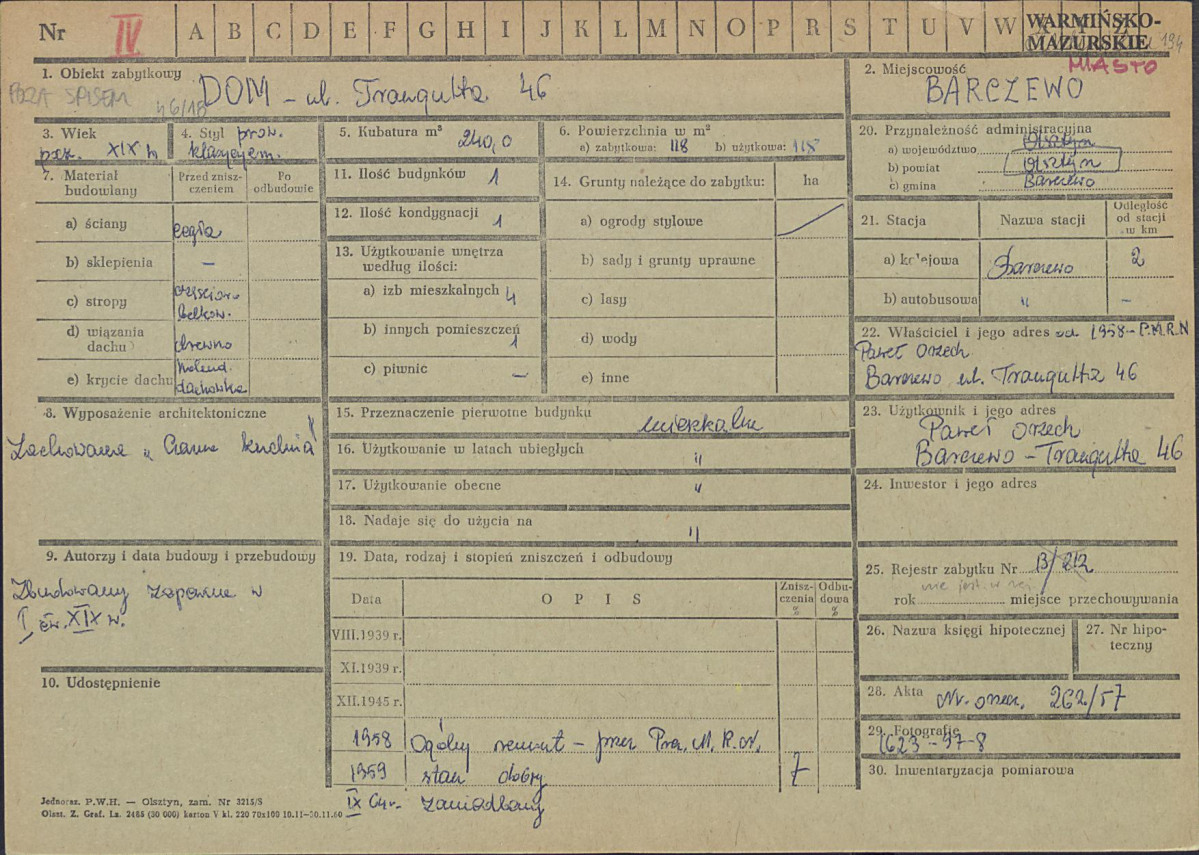 Nr IV A B C D E F G H I J K L M N O P R S T U V W
WARMIŃSKO-
MAZURSKIE 194
MIASTO
1. Obiekt zabytkowy
POZA SPISEM 46/18
DOM - ul. Traugutta 46
2. Miejscowość
BARCZEWO
3. Wiek
pocz. XIX w
4. Styl prow.
klasycyzm.
5. Kubatura m³ 240,0
6. Powierzchnia w m²
a) zabytkowa: 118 b) użytkowa: 118
7. Materiał
budowlany
Przed znisz-
czeniem
Po
odbudowie
a) ściany cegła
b) sklepienia —
c) stropy
belkow.
d) wiązania
dachu drewno
e) krycie dachu holend.
dachówka
11. Ilość budynków 1
12. Ilość kondygnacji 1
13. Użytkowanie wnętrza
według ilości:
a) izb mieszkalnych 4
b) innych pomieszczeń
1
c) piwnic —
14. Grunty należące do zabytku: ha
a) ogrody stylowe
b) sady i grunty uprawne
c) lasy
d) wody
e) inne
20. Przynależność administracyjna
a) województwo Olsztyn
b) powiat Olsztyn
c) gmina Barczewo
21. Stacja Nazwa stacji
Odległość
od stacji
w km
a) kolejowa Barczewo 2
b) autobusowa " —
22. Właściciel i jego adres od 1958 - P.M.R.N
Paweł Orzech
Barczewo ul. Traugutta 46
8. Wyposażenie architektoniczne
Zachowana „Czarna kuchnia"
15. Przeznaczenie pierwotne budynku mieszkalne
16. Użytkowanie w latach ubiegłych "
17. Użytkowanie obecne "
18. Nadaje się do użycia na "
23. Użytkownik i jego adres
Paweł Orzech
Barczewo - Traugutta 46
24. Inwestor i jego adres
9. Autorzy i data budowy i przebudowy
Zbudowany zapewne w
I ćw. XIX w.
10. Udostępnienie
19. Data, rodzaj i stopień zniszczeń i odbudowy
Data OPIS
Znisz-
czenia
%
Odbu-
dowa
%
VIII.1939 r.
XI.1939 r.
XII.1945 r.
1958 Ogólny remont - przez Prez. M. R. N.
1959 stan dobry 7
IX 64r. zaniedbany
25. Rejestr zabytku Nr B/212
nie jest w rej
rok miejsce przechowywania
26. Nazwa księgi hipotecznej
27. Nr hipo-
teczny
28. Akta Nr. orzecz. 262/57
29. Fotografie
1623-37-8
30. Inwentaryzacja pomiarowa
Jednoraz. P.W.H. — Olsztyn, zam. Nr 3215/S
Olszt. Z. Graf. Lz. 2485 (30 000) karton V kl. 220 70x100 10.11-30.11.60